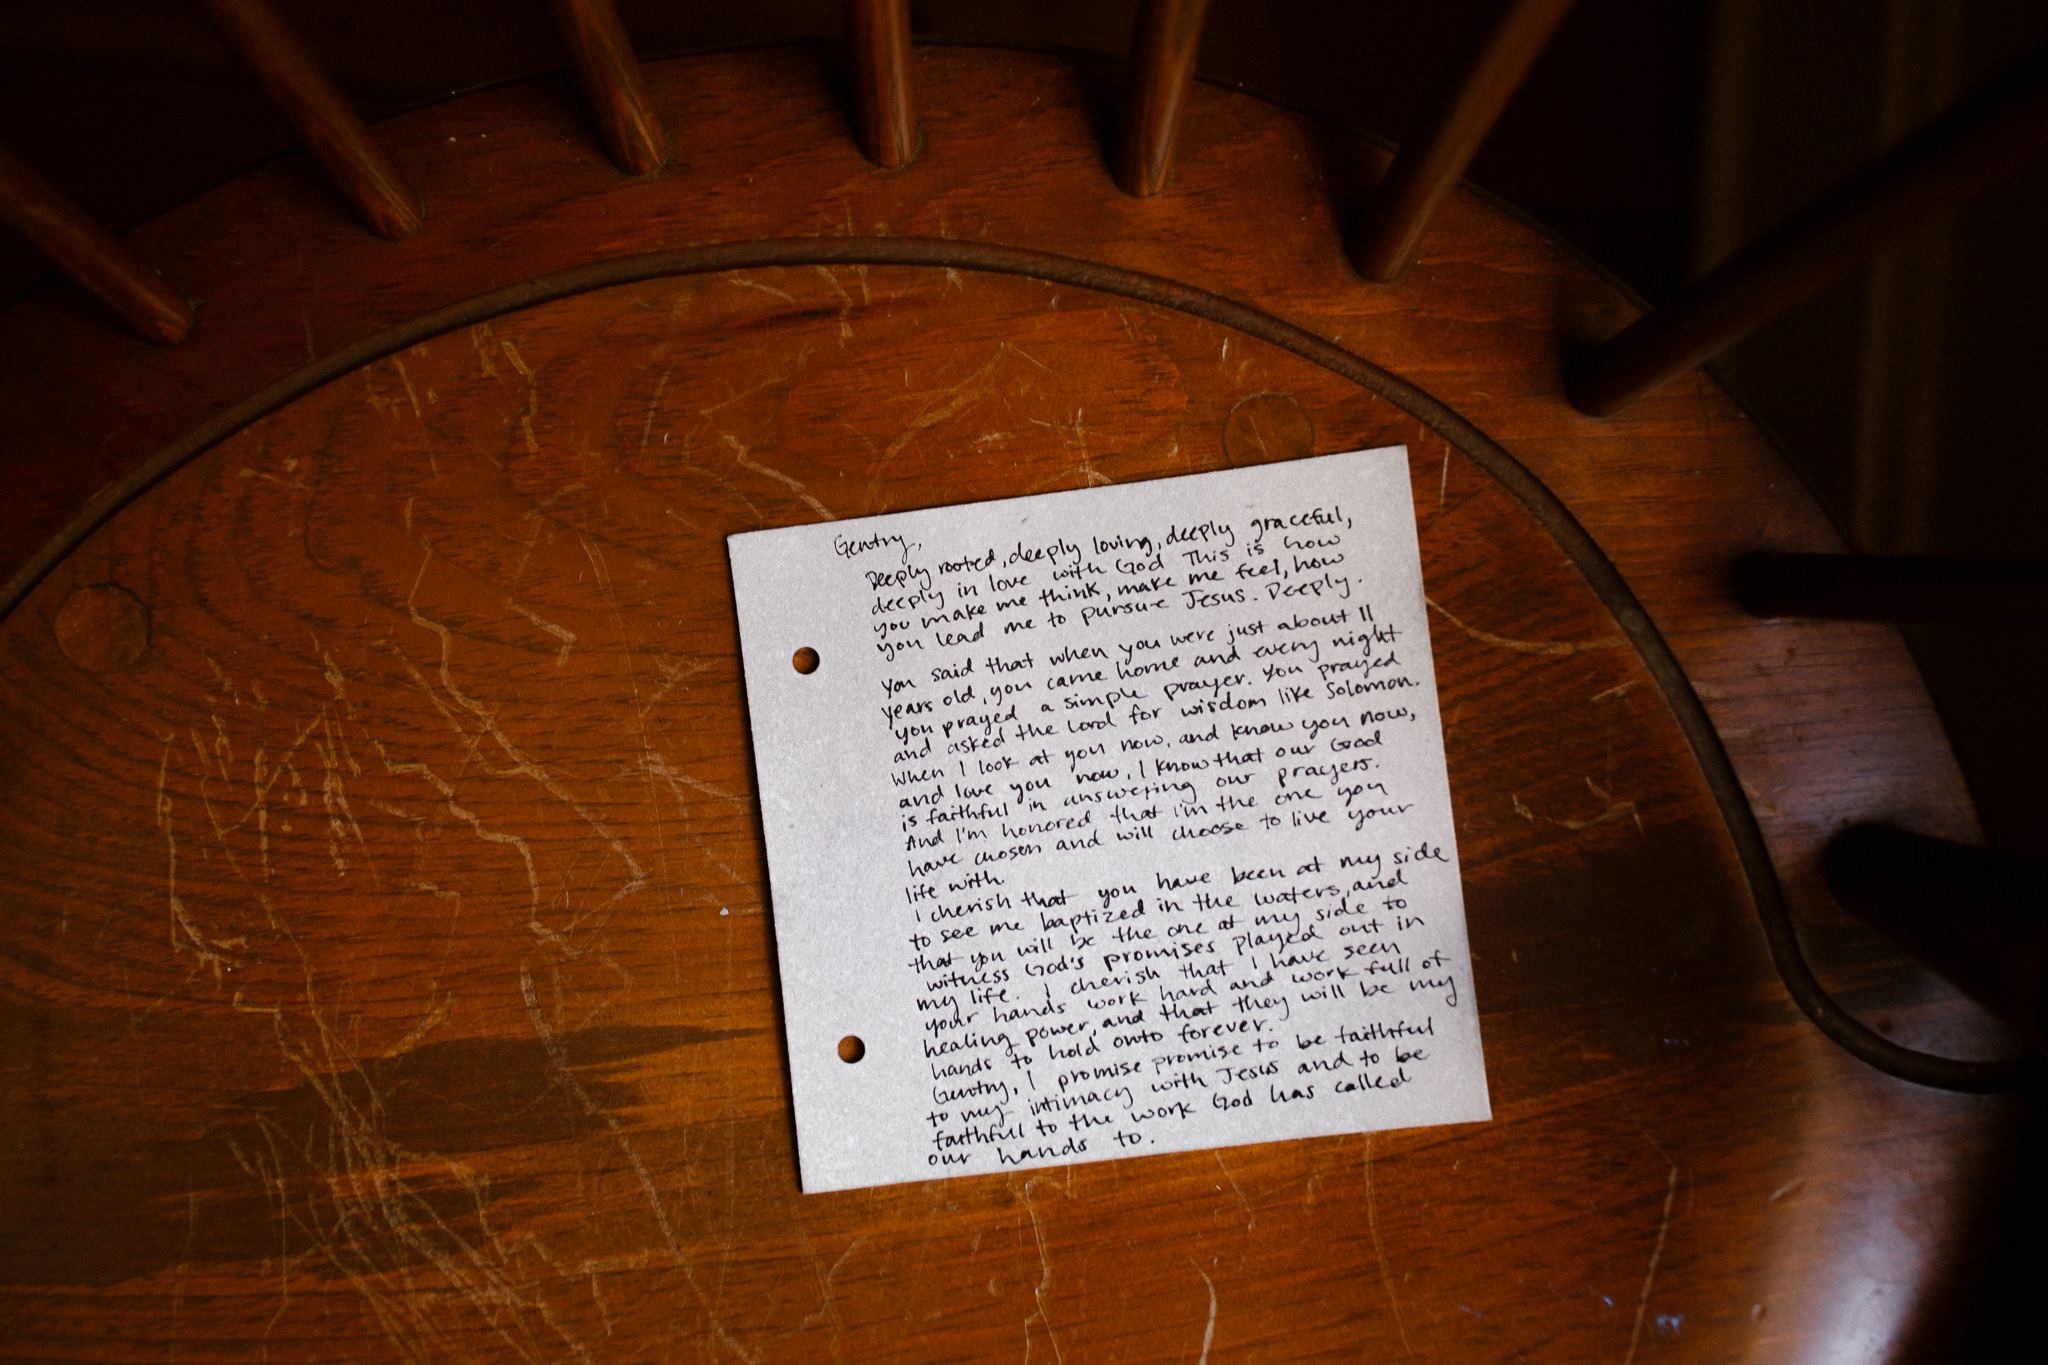 Gentry,
Deeply rooted, deeply loving, deeply graceful,
deeply in love with God This is how
you make me think, make me feel, how
you lead me to pursue Jesus. Deeply.
You said that when you were just about 11
years old, you came home and every night
you prayed a simple prayer. You prayed
and asked the Lord for wisdom like Solomon.
When I look at you now, and know you now,
and love you now, I know that our God
is faithful in answering our prayers.
And I'm honored that I'm the one you
have chosen and will choose to live your
life with.
I cherish that you have been at my side
to see me baptized in the waters, and
that you will be the one at my side to
witness God's promises played out in
my life. I cherish that I have seen
your hands work hard and work full of
healing power, and that they will be my
hands to hold onto forever.
Gentry, I promise promise to be faithful
to my intimacy with Jesus and to be
faithful to the work God has called
our hands to.